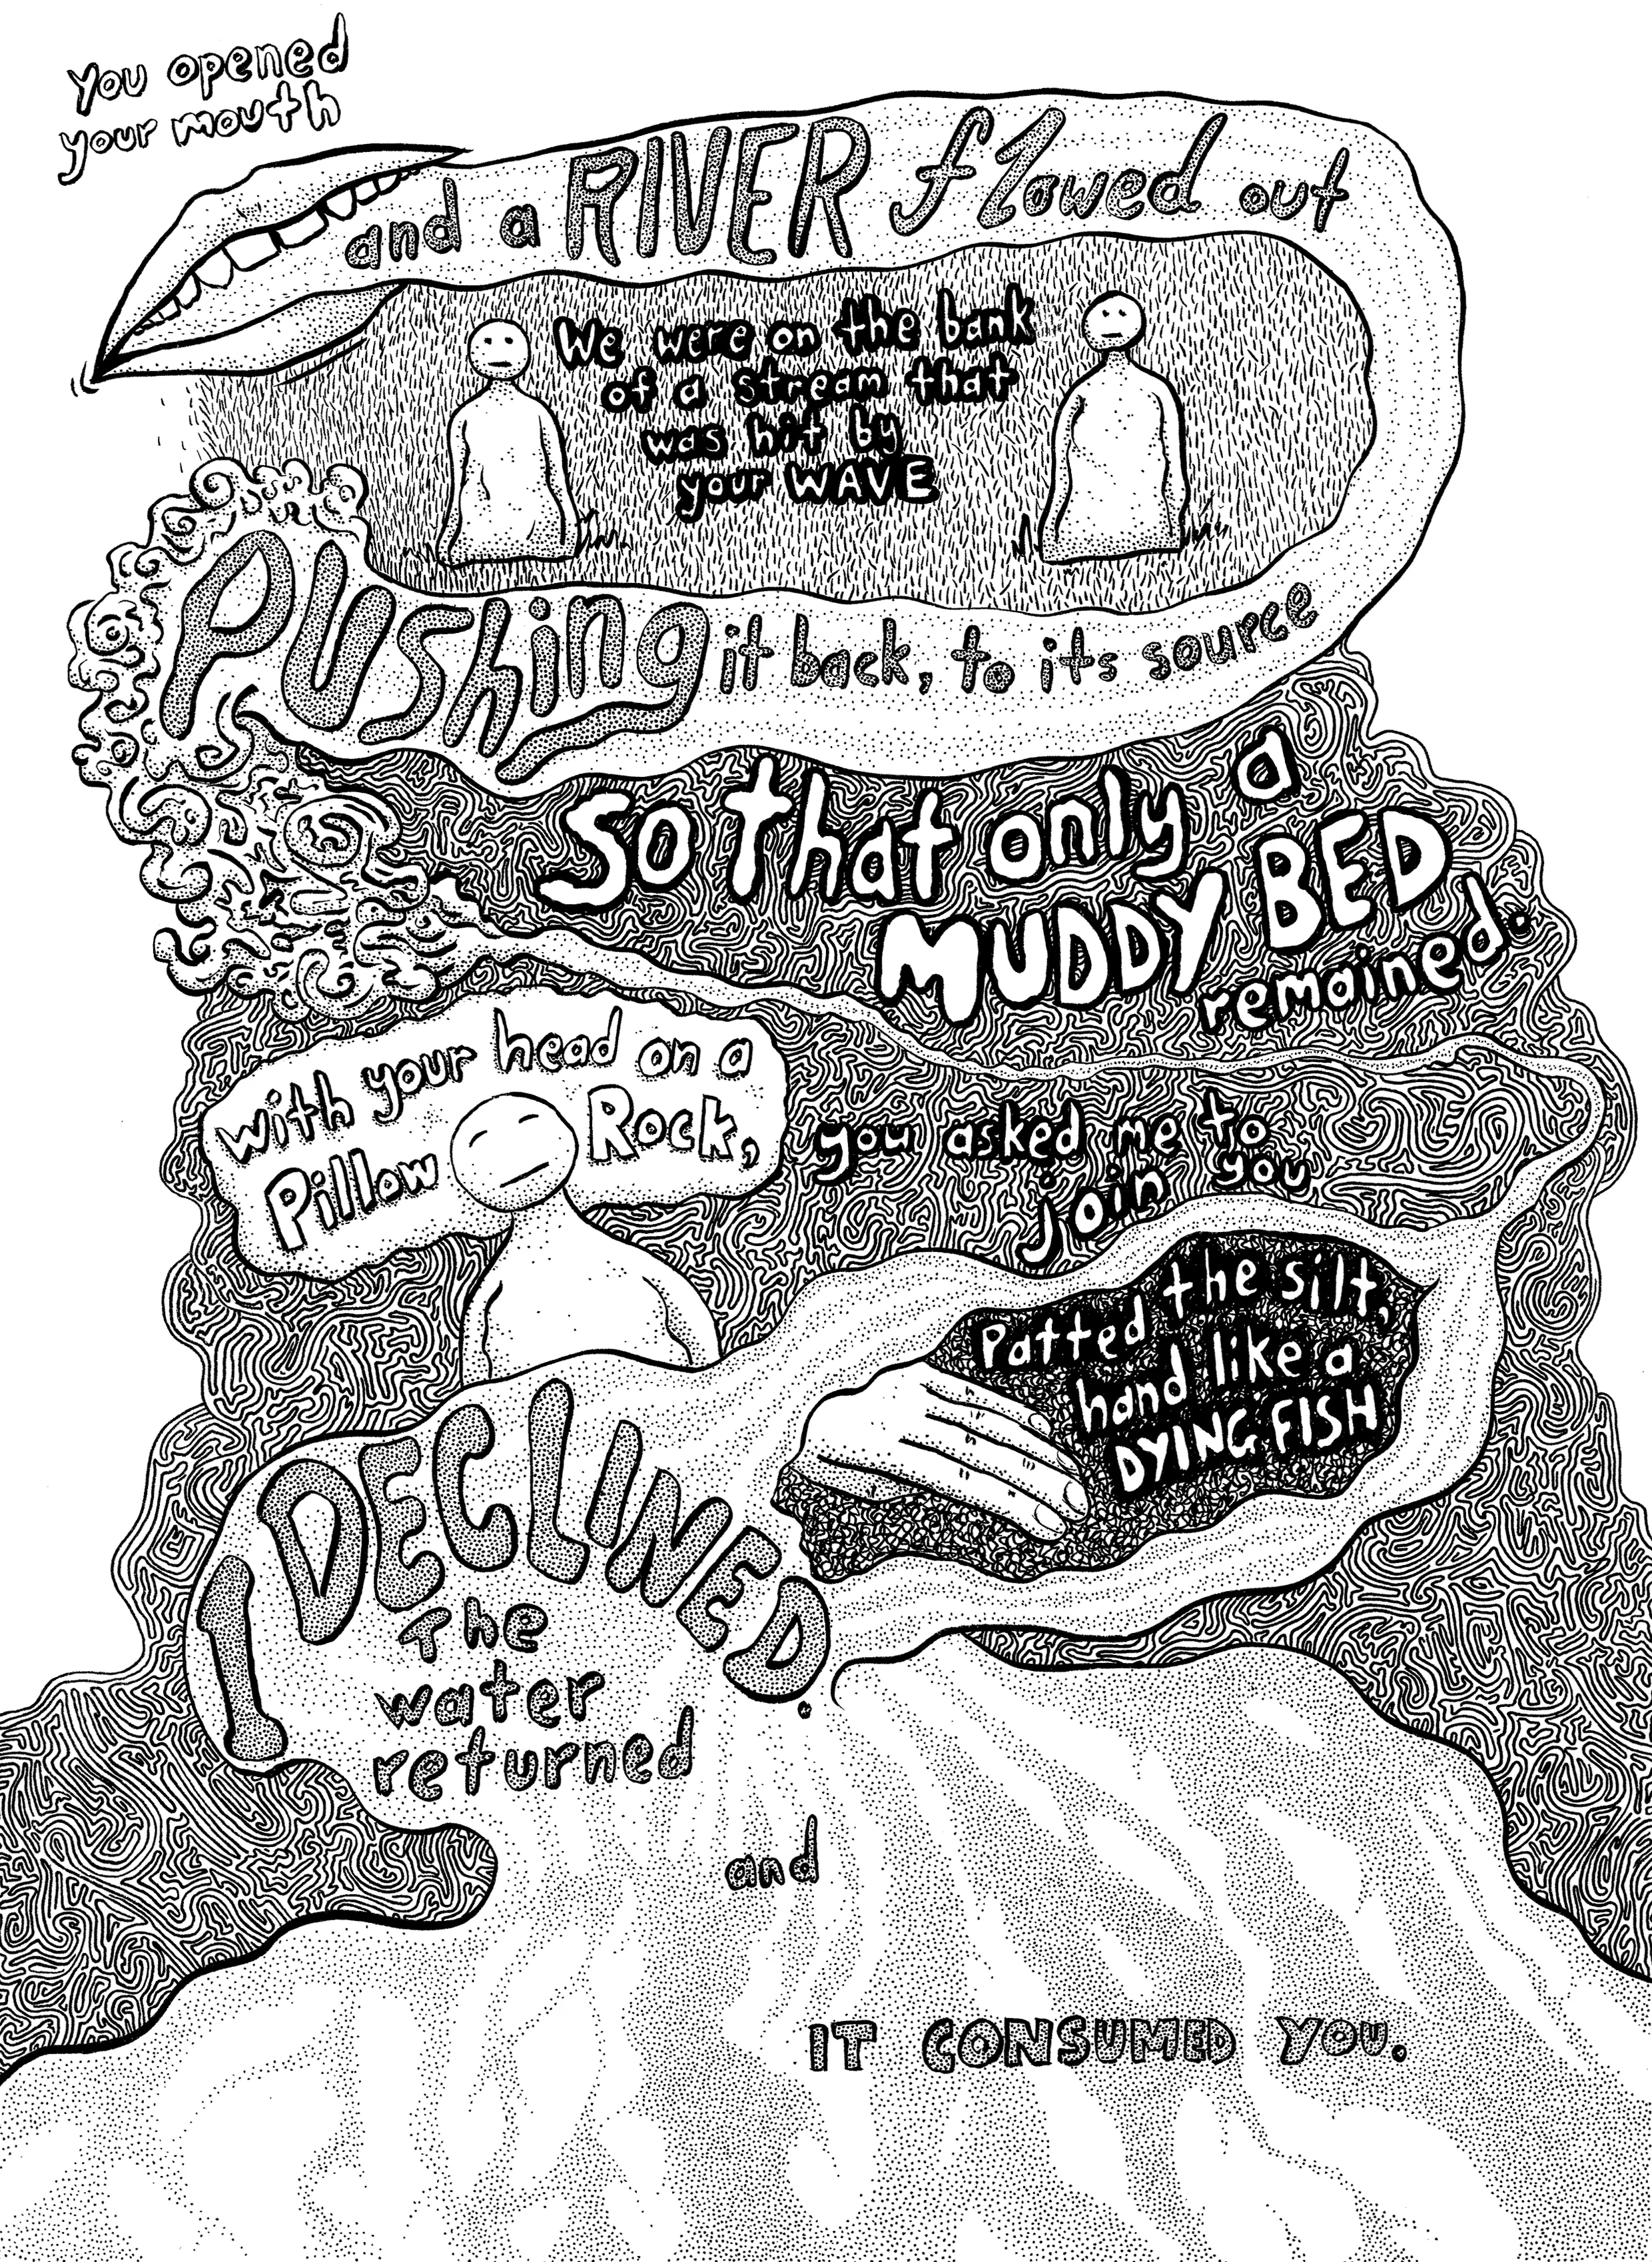 You opened
your mouth
and a RIVER flowed out
We were on the bank
of a stream that
was hit by
your WAVE
PUShing it back, to its source
So that only a
MUDDY BED
remained.
with your head on a
Pillow Rock,
you asked me to
join you
Patted the silt,
hand like a
DYING FISH
I DECLINED.
The
water
returned
and
IT CONSUMED YOU.